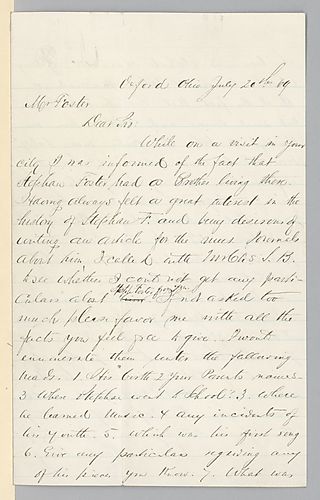 Oxford Ohio July 20th 89
Mr Foster
Dear Sir:
While on a visit in your
city I was informed of the fact that
Stephen Foster, had a Brother living there.
Having always felt a great interest in the
history of Stephen F. and being desirous of
writing an article for the music Journals
about him I called with S. B.
to see whether I could not get any parti-
culars about Steph. Foster from you. If not asked too
much please favor me with all the
facts you feel free to give. I wont
enumerate them under the following
heads. 1. His birth 2 Your Parents names-
3 When Stephen went to School. 3. where
he learned music. 4 any incidents of
his youth. 5. Which was his first song
6. Give any particulars regarding any
of his pieces you know. 7. What was